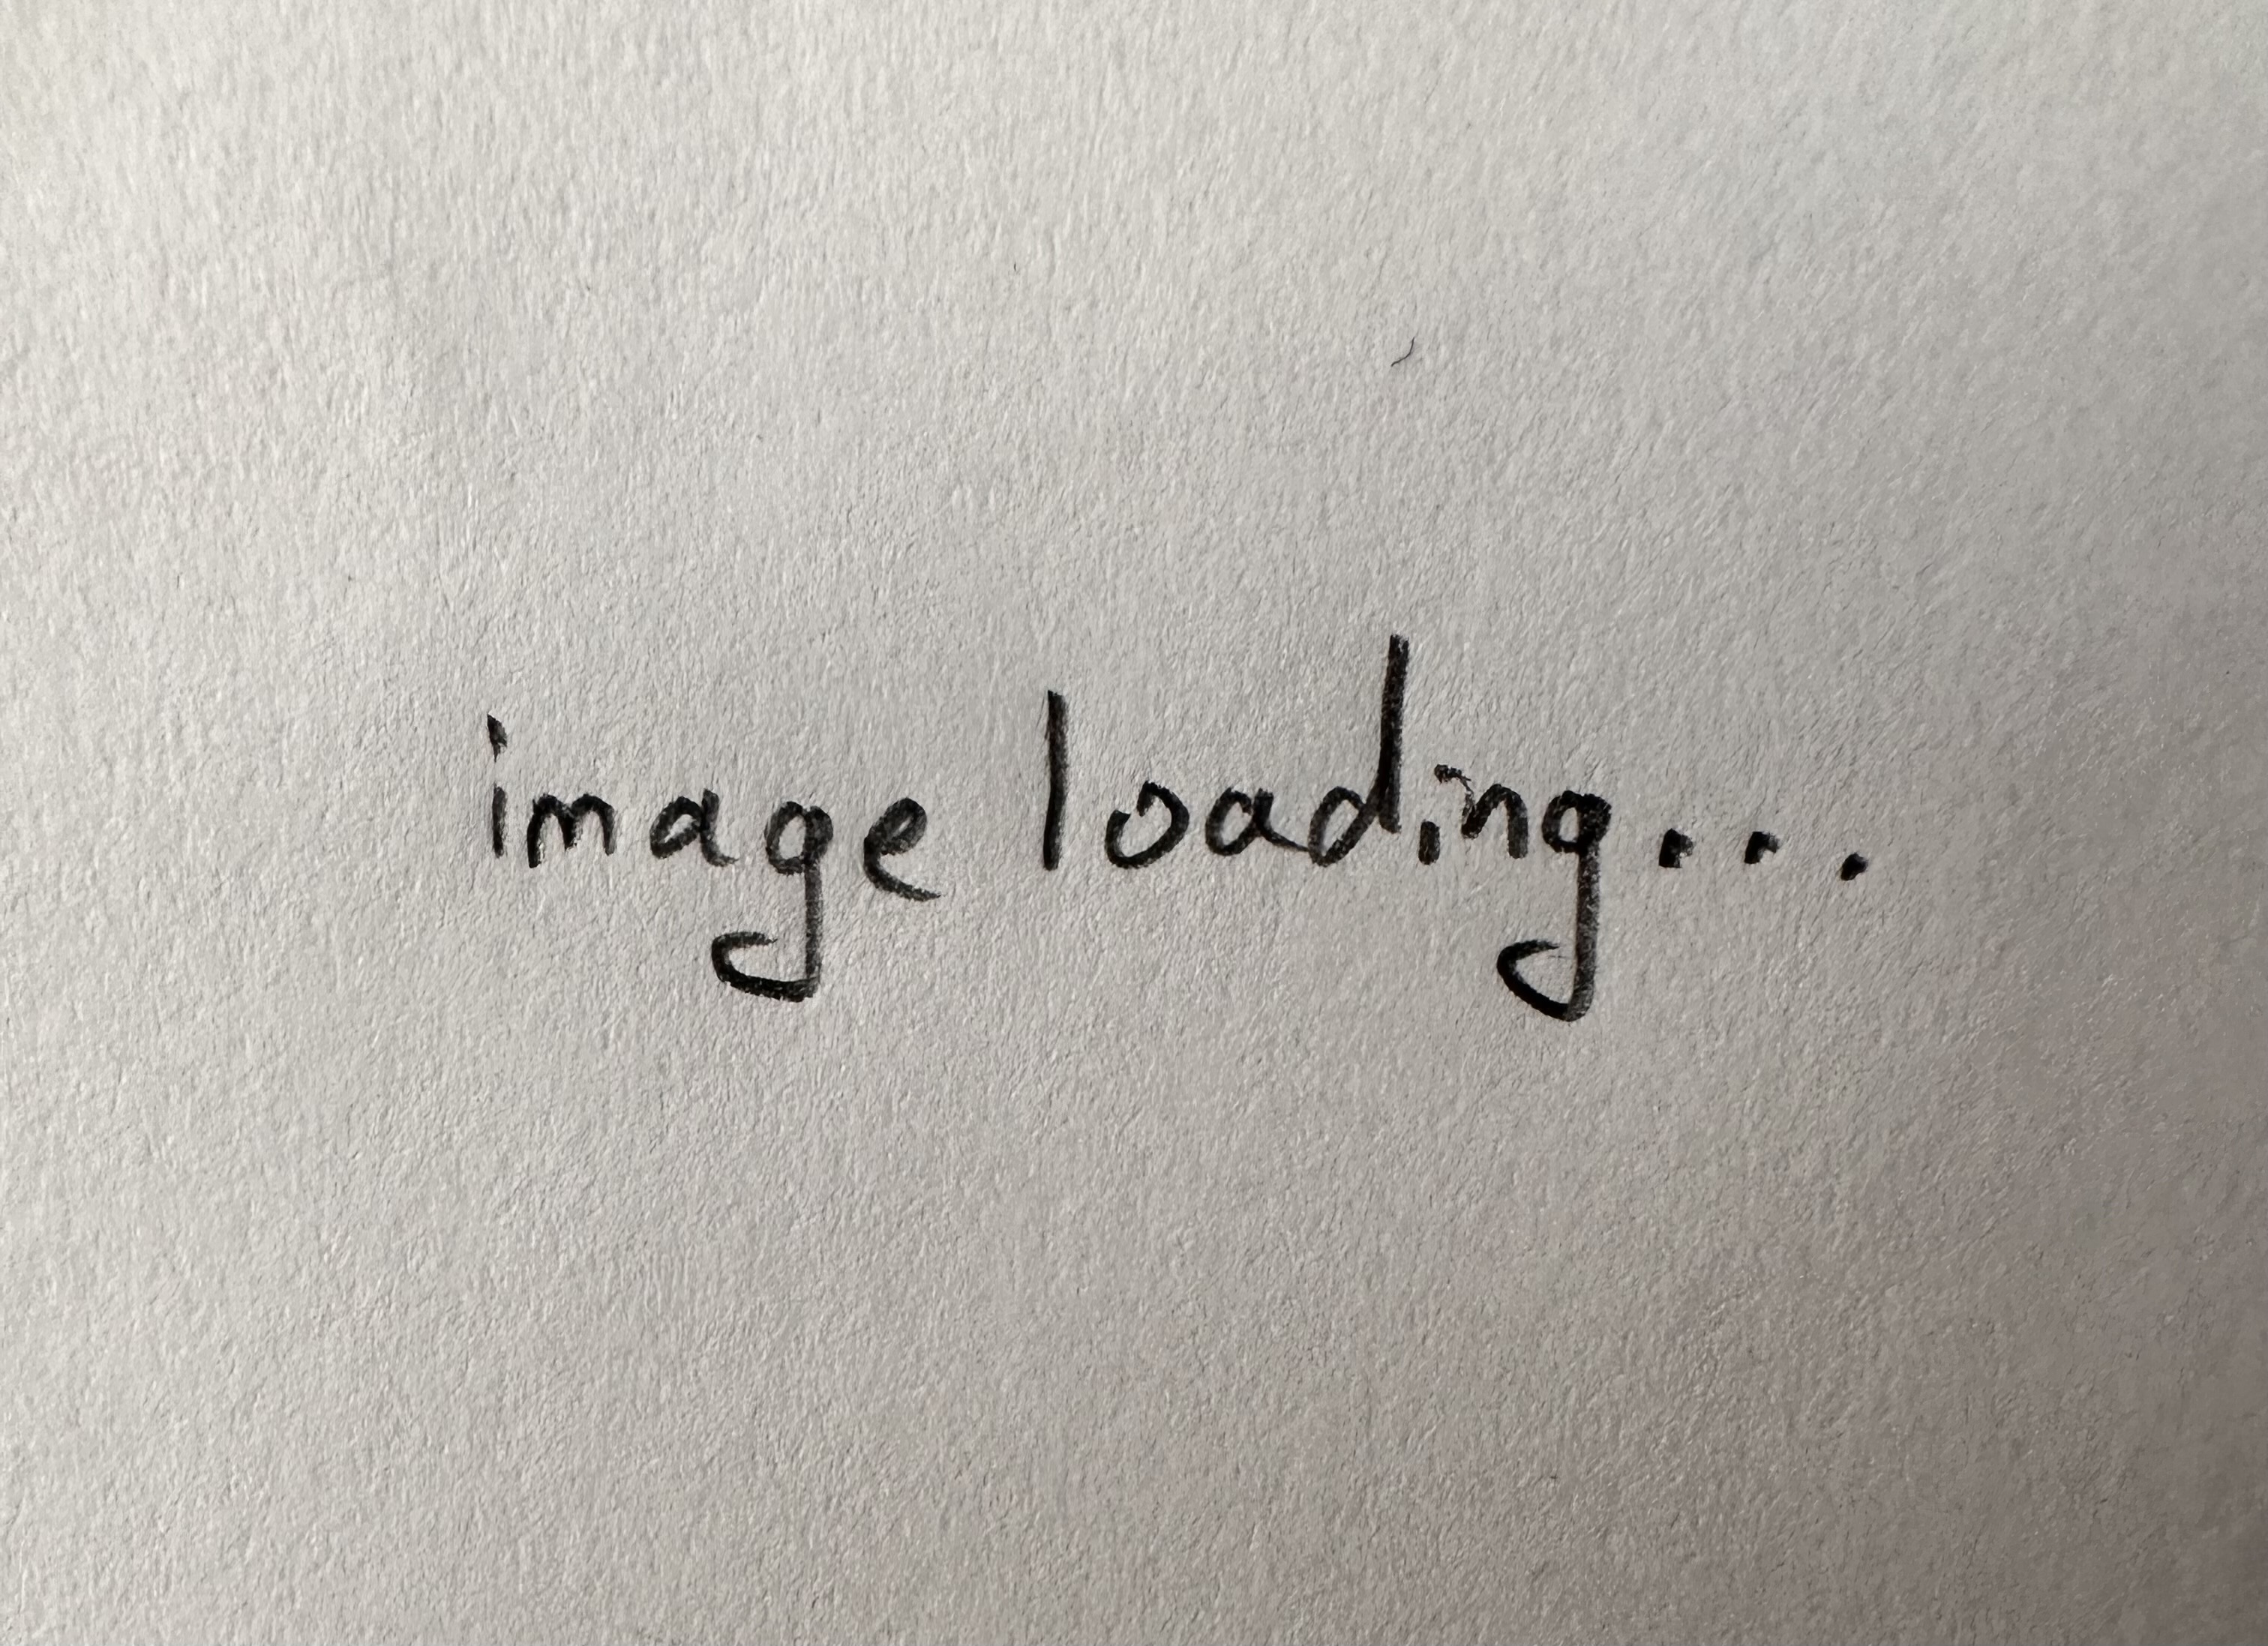 image loading...